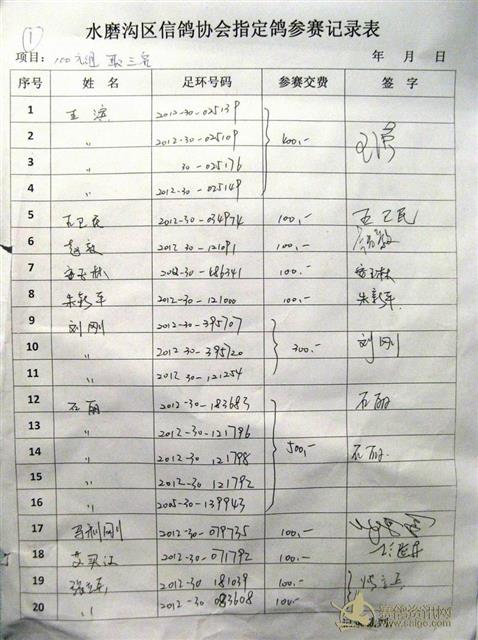 ①
水磨沟区信鸽协会指定鸽参赛记录表
项目: 100元组 取三名 年 月 日
序号 姓名 足环号码 参赛交费 签字
1 王滨 2012-30-025139
2 〃 2012-30-025109 400.-
3 〃 30-025176
4 〃 2012-30-025149
5 王卫民 2012-30-034974 100.- 王卫民
6 赵毅 2012-30-121091 100.-
7 2012-30-686341 100.-
8 朱新军 2012-30-121000 100.- 朱新军
9 刘刚 2012-30-395707
10 〃 2012-30-395720 300.- 刘刚
11 〃 2012-30-121254
12 石丽 2012-30-183683 石丽
13 〃 2012-30-121796
14 〃 2012-30 121798 500.- 石丽
15 〃 2012-30 121792
16 〃 2005-30-139943
17 2012-30-079735 100.-
18 艾买江 2012-30-071792 100.-
19 2012-30 181039 100.-
20 〃 2012-30 083608 100.-
赛鸽资讯网
www.saige.com